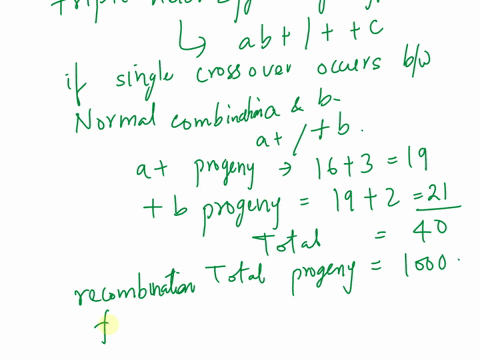 triple
↳ ab+ / + + c
if single crossover occurs b/w
Normal combination a & b-
a+ / + b.
a+ progeny → 16+3 = 19
+ b progeny = 19+2 = 21
Total = 40
recombination Total progeny = 1000.
f